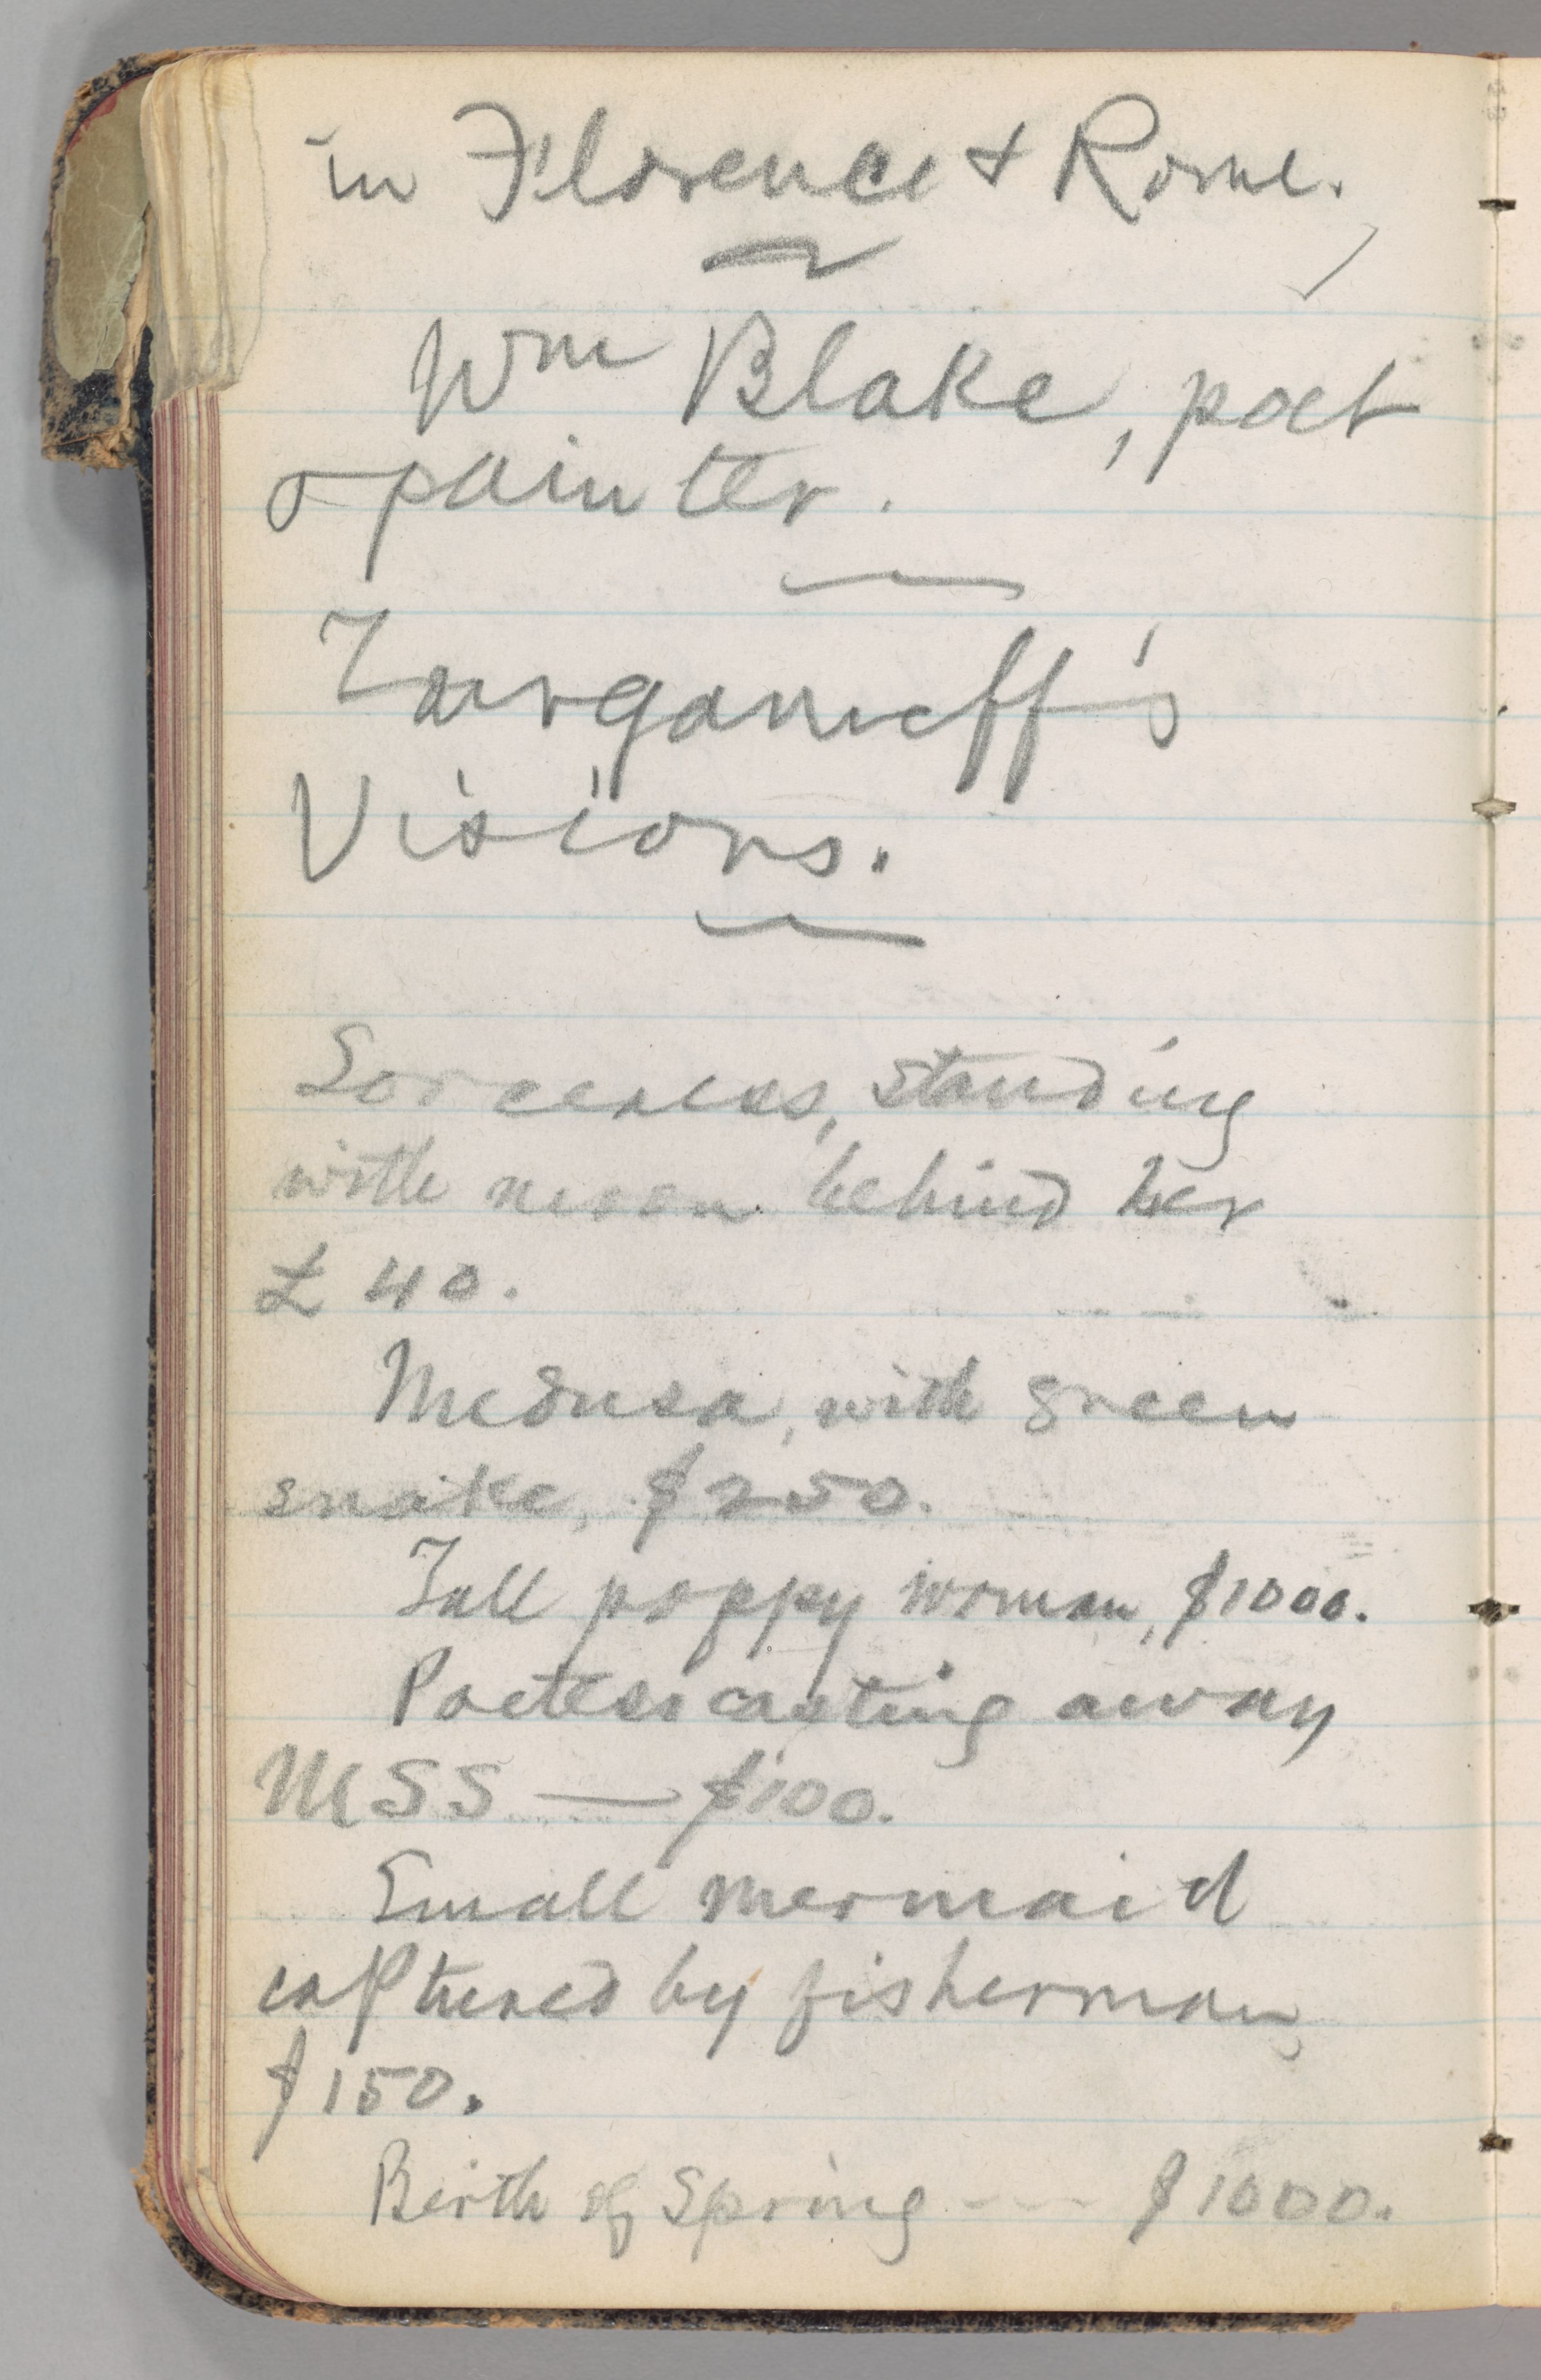 in Florence & Rome.
Wm Blake, poet
& painter.
Turganieff's
Visions.
Sorceress, standing
with moon behind her
£ 40.
Medusa, with green
snake, $250.
Tall poppy woman, $1000.
Poetess casting away
MSS — $100.
Small mermaid
captured by fisherman,
$150.
Birth of Spring --- $1000.